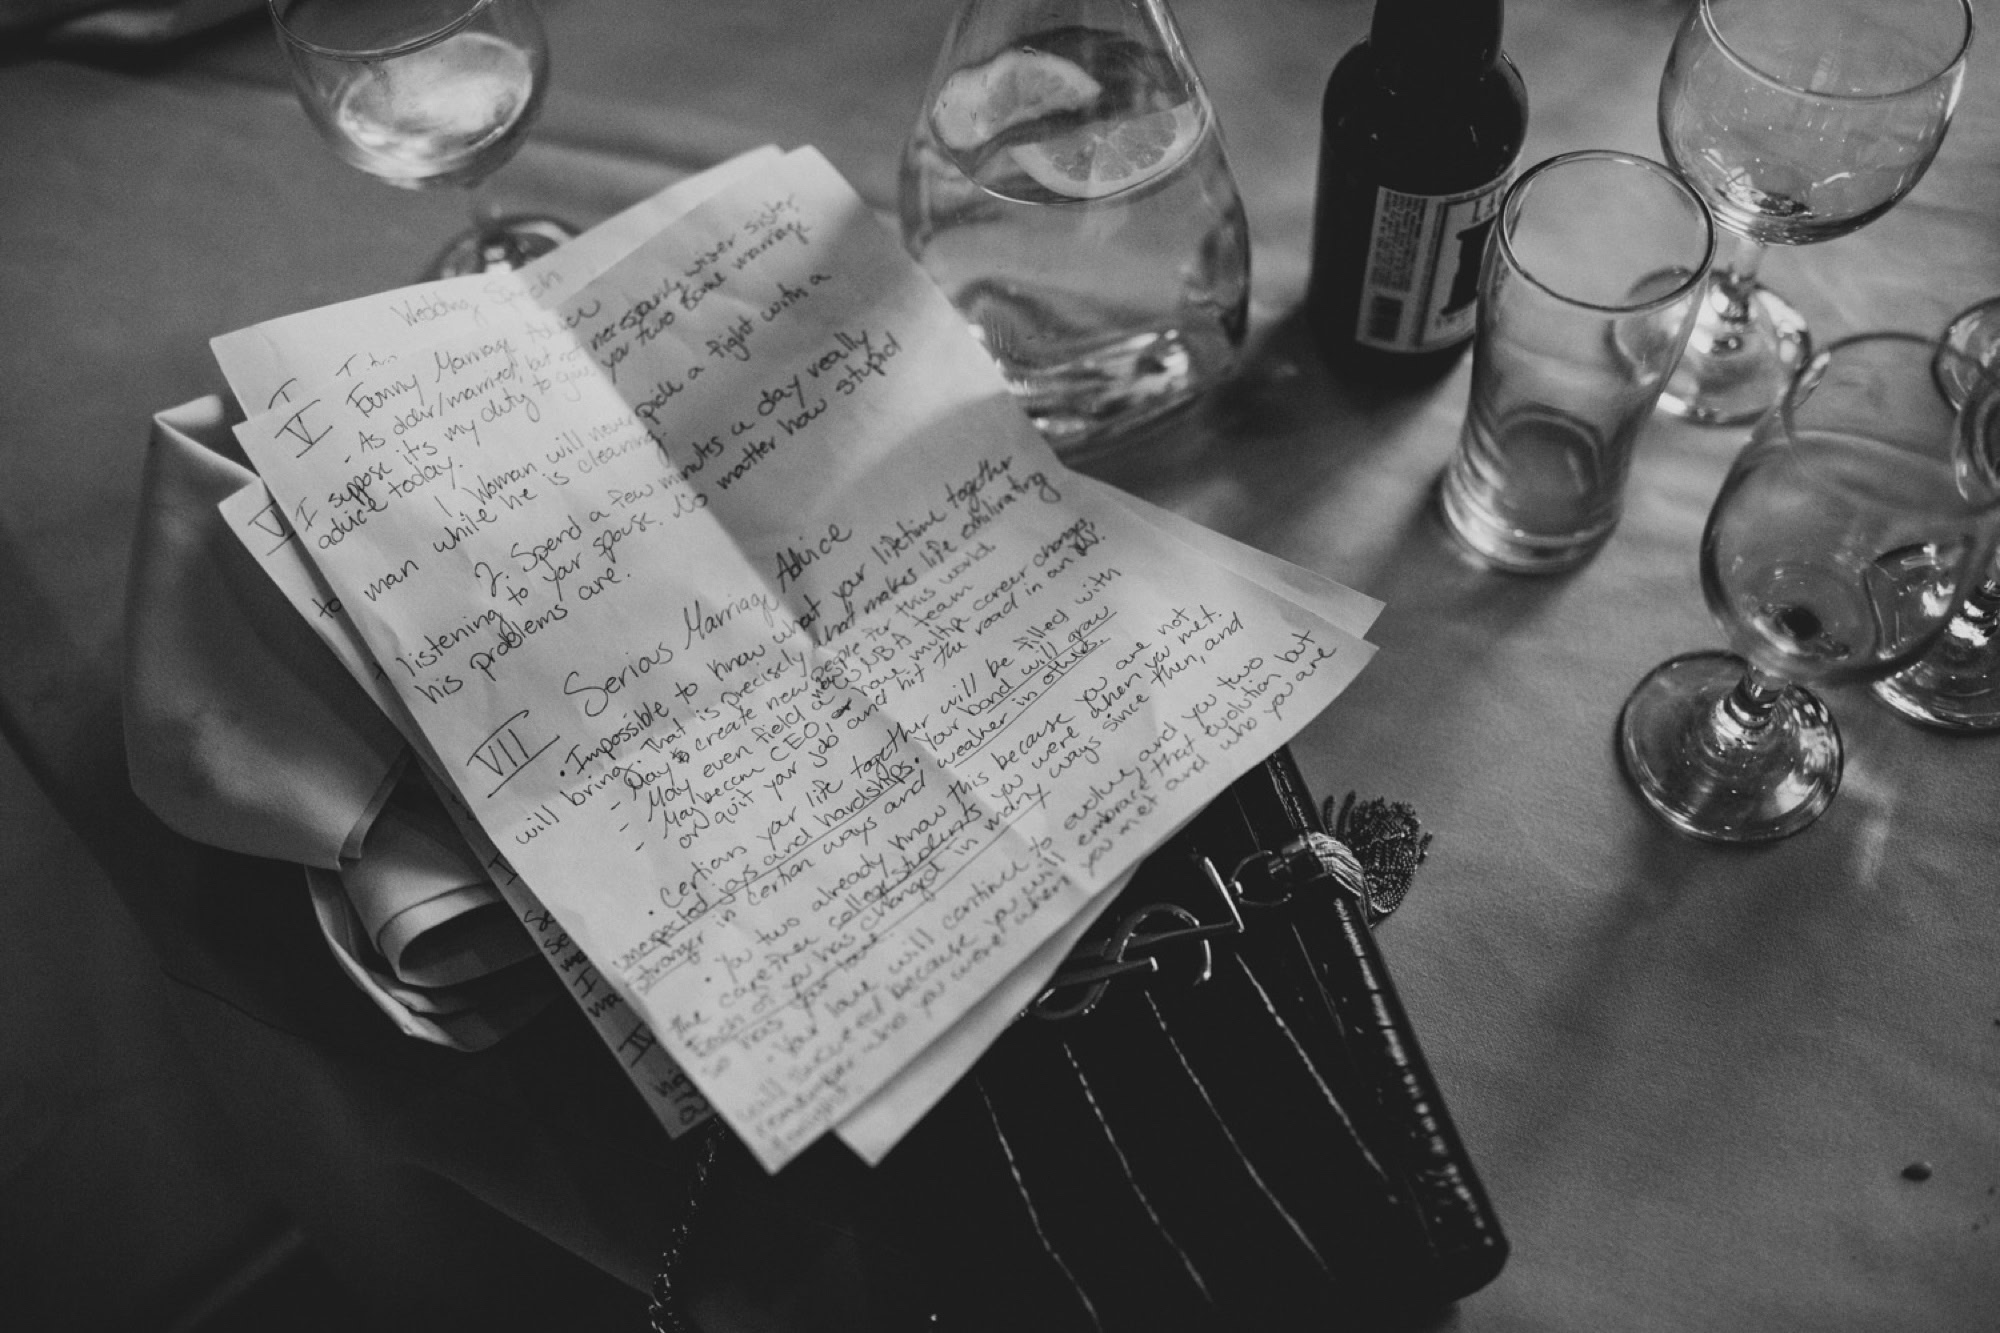 Wedding Speech
I
V Funny Marriage Advice
- As older/married, but not necessarily wiser sister
I suppose it's my duty to give you two some marriage
advice today.
1. Woman will never pick a fight with a
man while he is cleaning.
2. Spend a few minutes a day really
listening to your spouse. No matter how stupid
his problems are.
VII Serious Marriage Advice
• Impossible to know what your lifetime together
will bring. That is precisely what makes life exhilirating
- May create new people for this world.
- May even field a new WNBA team
- May becom CEO, or have multiple career changes
or quit your job and hit the road in an RV.
• Certians your life together will be filled with
unexpected joys and hardships. Your bond will grow
stronger in certian ways and weaker in others.
• You two already know this because you are not
the carefree college students you were when you met.
Each of you has changed in many ways since then, and
so has your love.
• Your love will continue to evolve, and you two
will succeed because you will embrace that evolution but
remember who you were when you met and who you are
tonight.